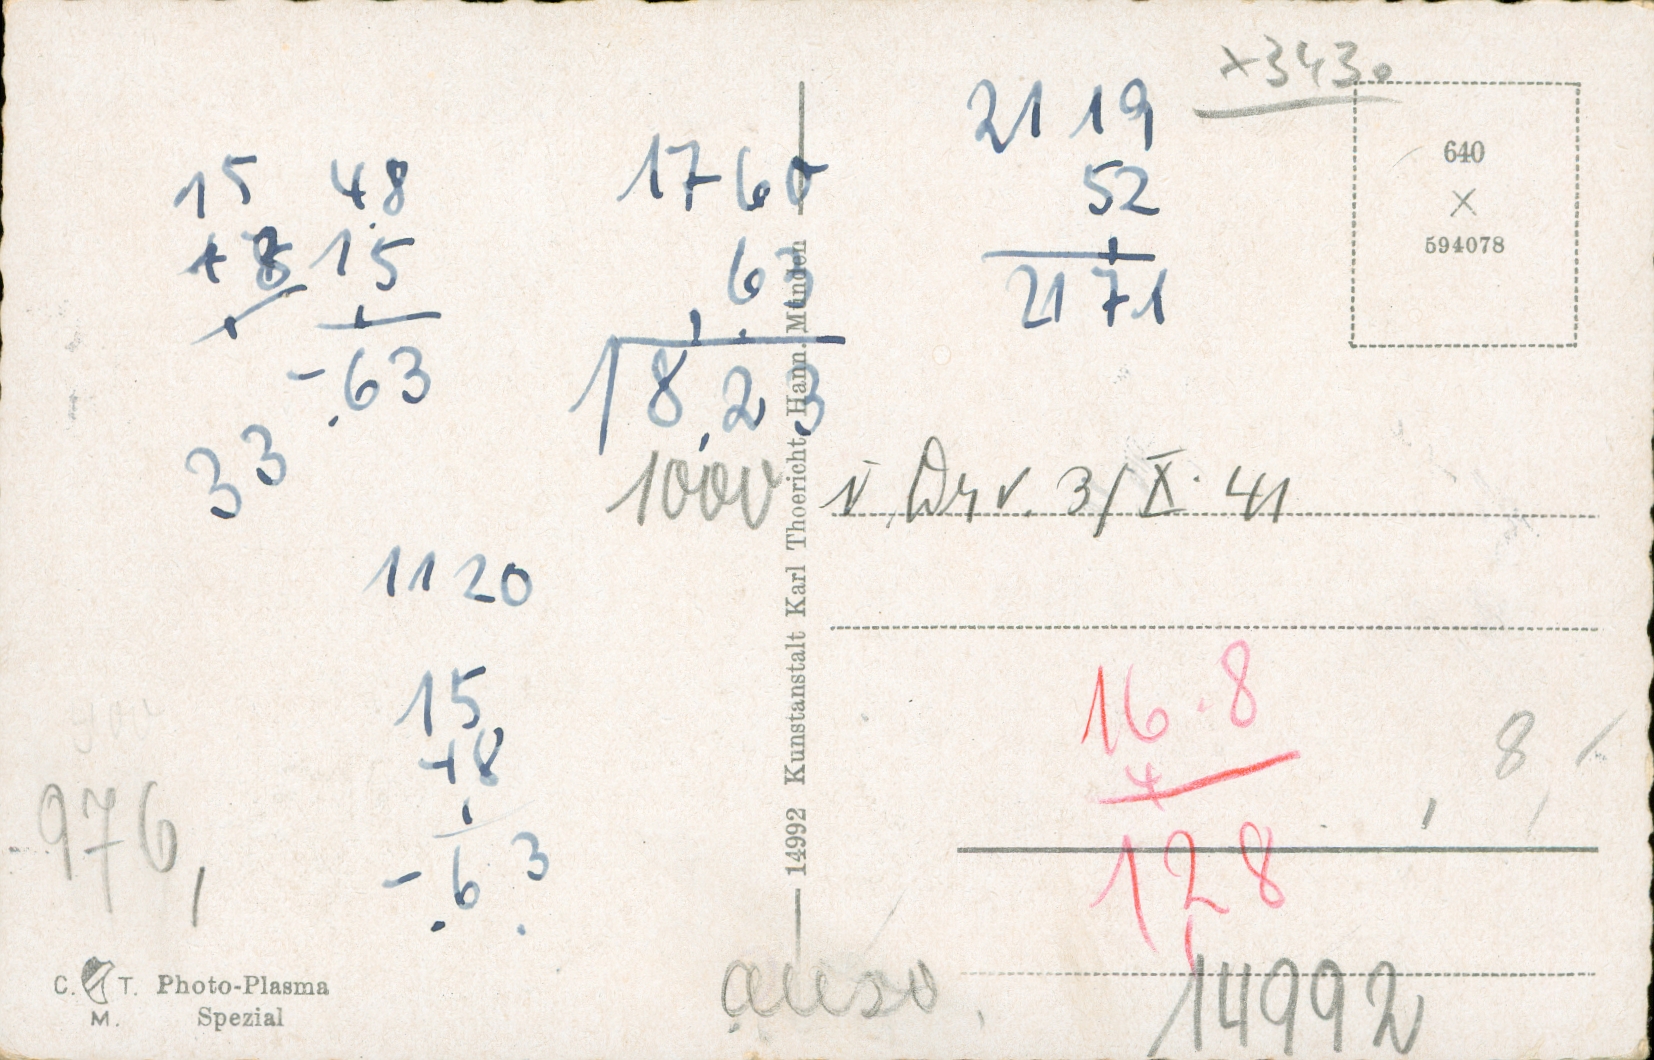 x3430
15
+ 8
48
15
- 63
33
1760
63
1823
1000
2119
52
2171
640
X
594078
3/X. 41
1120
15
+8
- 63
976,
16.8
128
8
14992 Kunstanstalt Karl Thoericht, Hann. Münden
C. T. M. Photo-Plasma
Spezial
14992